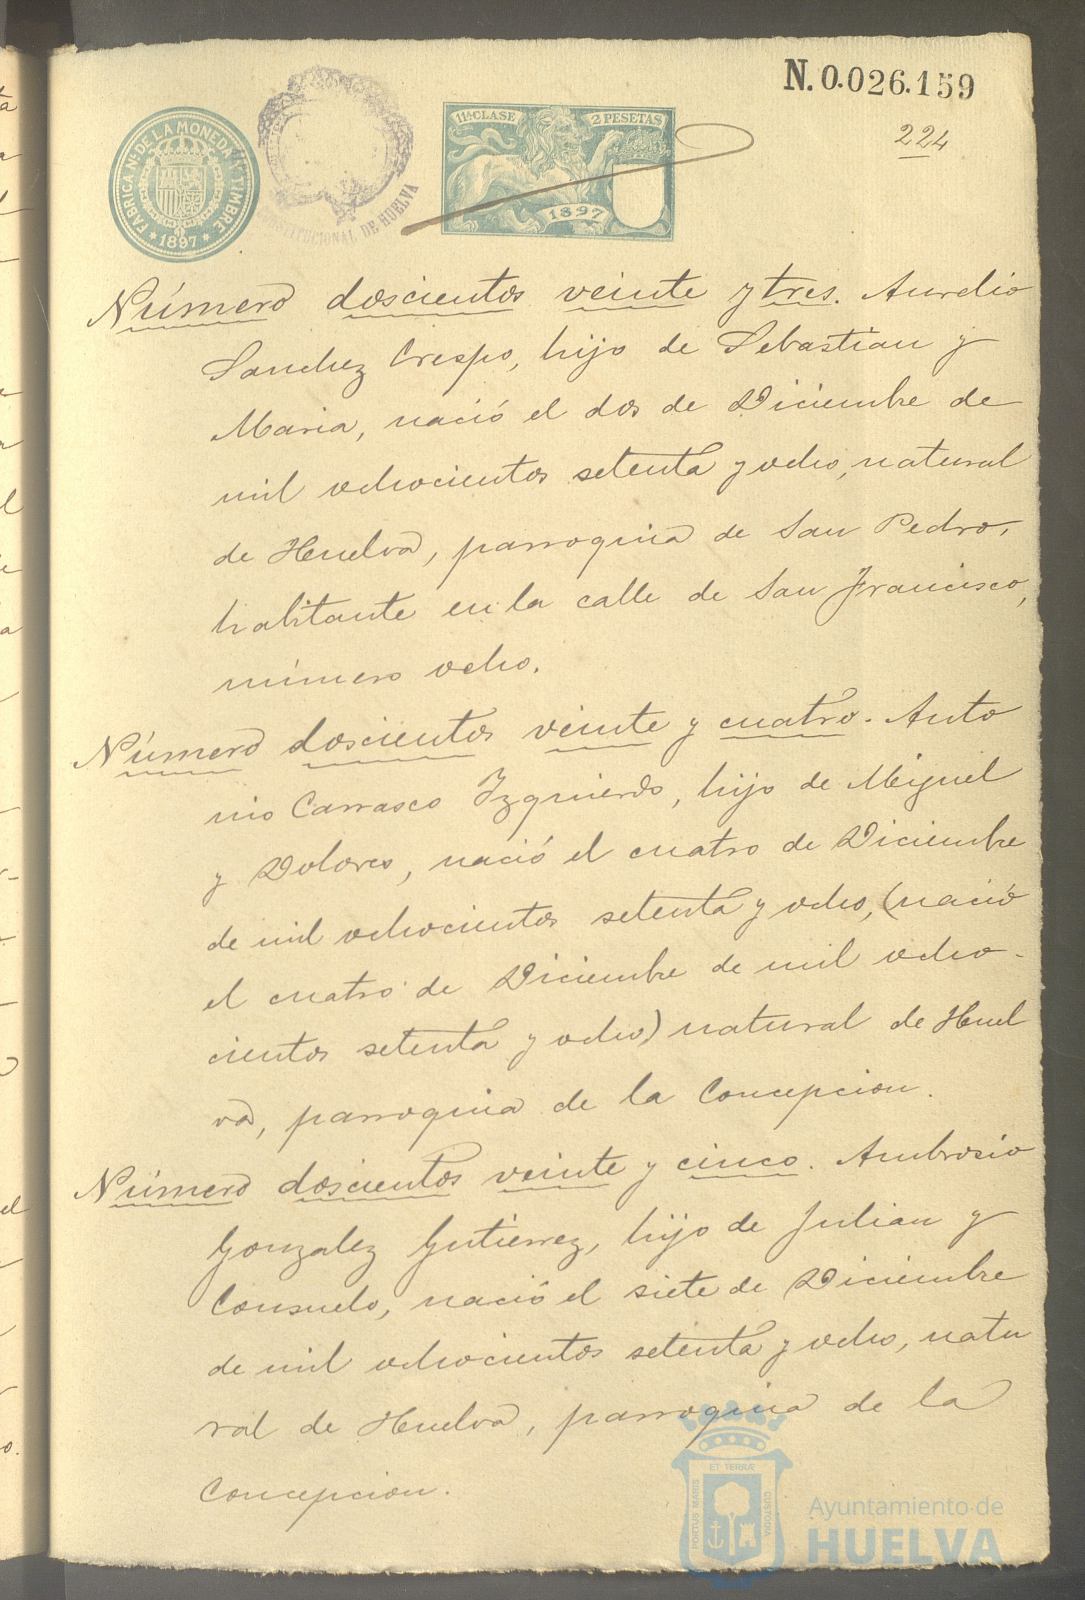 N. 0.026.159
224
FABRICA N.ᴸ DE LA MONEDA Y TIMBRE
* 1897 *
CONSTITUCIONAL DE HUELVA
11ª CLASE
2 PESETAS
1897
Número doscientos veinte y tres. Aurelio
Sanchez Crespo, hijo de Sebastian y
Maria, nació el dos de Diciembre de
mil ochocientos setenta y ocho, natural
de Huelva, parroquia de San Pedro,
habitante en la calle de San Francisco,
número ocho.
Número doscientos veinte y cuatro. Anto
nio Carrasco Izquierdo, hijo de Miguel
y Dolores, nació el cuatro de Diciembre
de mil ochocientos setenta y ocho, (nació
el cuatro de Diciembre de mil ocho-
cientos setenta y ocho) natural de Huel
va, parroquia de la Concepcion.
Número doscientos veinte y cinco. Ambrosio
Gonzalez Gutierrez, hijo de Julian y
Consuelo, nació el siete de Diciembre
de mil ochocientos setenta y ocho, natu
ral de Huelva, parroquia de la
Concepcion.
ET TERRÆ
PORTUS MARIS
CUSTODIA
Ayuntamiento de
HUELVA